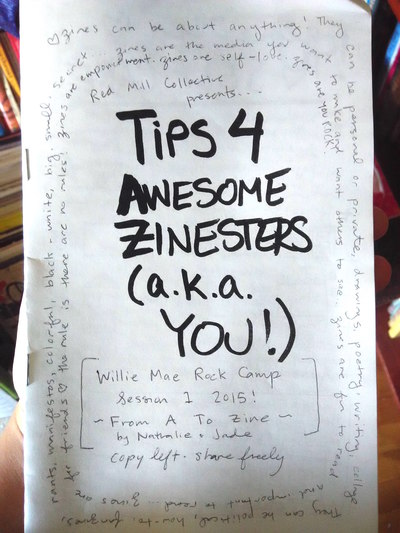 ♡ zines can be about anything! They
can be personal or private, drawings, poetry, writing, collage
They can be political, how-to, fanzines,
rants, manifestos, colorful, black + white, big, small,
secret... zines are the media you want
to make and want others to see. zines are fun to read
and important to read... zines are
for friends ♡ the rule is there are no rules! zines
are empowerment. zines are self-love. zines are you ROCK!
Red Mill Collective
presents...
TIPS 4
AWESOME
ZINESTERS
(a.k.a.
YOU!)
Willie Mae Rock Camp
Session 1 2015!
~ From A To Zine ~
by Nathalie + Jade
copy left · share freely